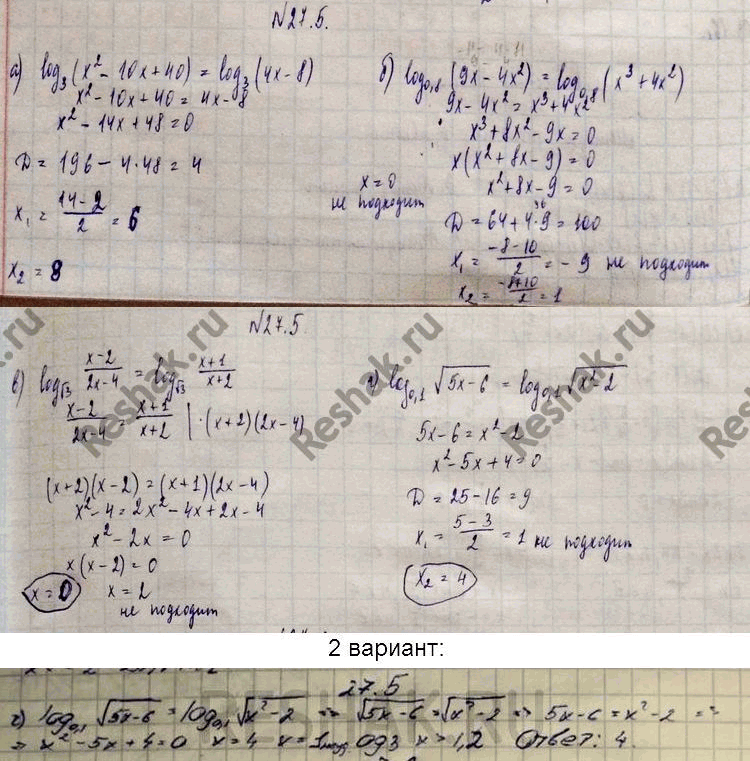 №27.5.
а) log₃(x² - 10x + 40) = log₃(4x - 8)
x² - 10x + 40 = 4x - 8
x² - 14x + 48 = 0
D = 196 - 4·48 = 4
x₁ = (14 - 2)/2 = 6
x₂ = 8
б) log₀,₈(9x - 4x²) = log₀,₈(x³ + 4x²)
9x - 4x² = x³ + 4x²
x³ + 8x² - 9x = 0
x(x² + 8x - 9) = 0
x = 0
не подходит
x² + 8x - 9 = 0
D = 64 + 4·9 = 100
x₁ = (-8 - 10)/2 = -9 не подходит
x₂ = (-8 + 10)/2 = 1
№27.5.
в) log√3 (x-2)/(2x-4) = log√3 (x+1)/(x+2)
(x-2)/(2x-4) = (x+1)/(x+2) | ·(x+2)(2x-4)
(x+2)(x-2) = (x+1)(2x-4)
x² - 4 = 2x² - 4x + 2x - 4
x² - 2x = 0
x(x - 2) = 0
x = 0 x = 2
не подходит
г) log₀,₁ √(5x-6) = log₀,₁ √(x²-2)
5x - 6 = x² - 2
x² - 5x + 4 = 0
D = 25 - 16 = 9
x₁ = (5 - 3)/2 = 1 не подходит
x₂ = 4
Reshak.ru
Reshak.ru
Reshak.ru
2 вариант:
27.5
г) log₀,₁ √(5x-6) = log₀,₁ √(x²-2) => √(5x-6) = √(x²-2) => 5x-6 = x²-2 =>
=> x² - 5x + 4 = 0 x = 4 x = 1 ОДЗ x > 1,2 Ответ: 4.